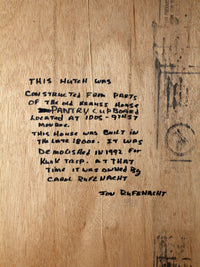 THIS HUTCH WAS
CONSTRUCTED FROM PARTS
OF THE OLD KRANSE HOUSE
PANTRY CUPBOARD
LOCATED AT 1005 - 9TH ST
MONROE.
THIS HOUSE WAS BUILT IN
THE LATE 1800s. IT WAS
DEMOLISHED IN 1992 FOR
KWIK TRIP. AT THAT
TIME IT WAS OWNED BY
CAROL RUFENACHT
JON RUFENACHT